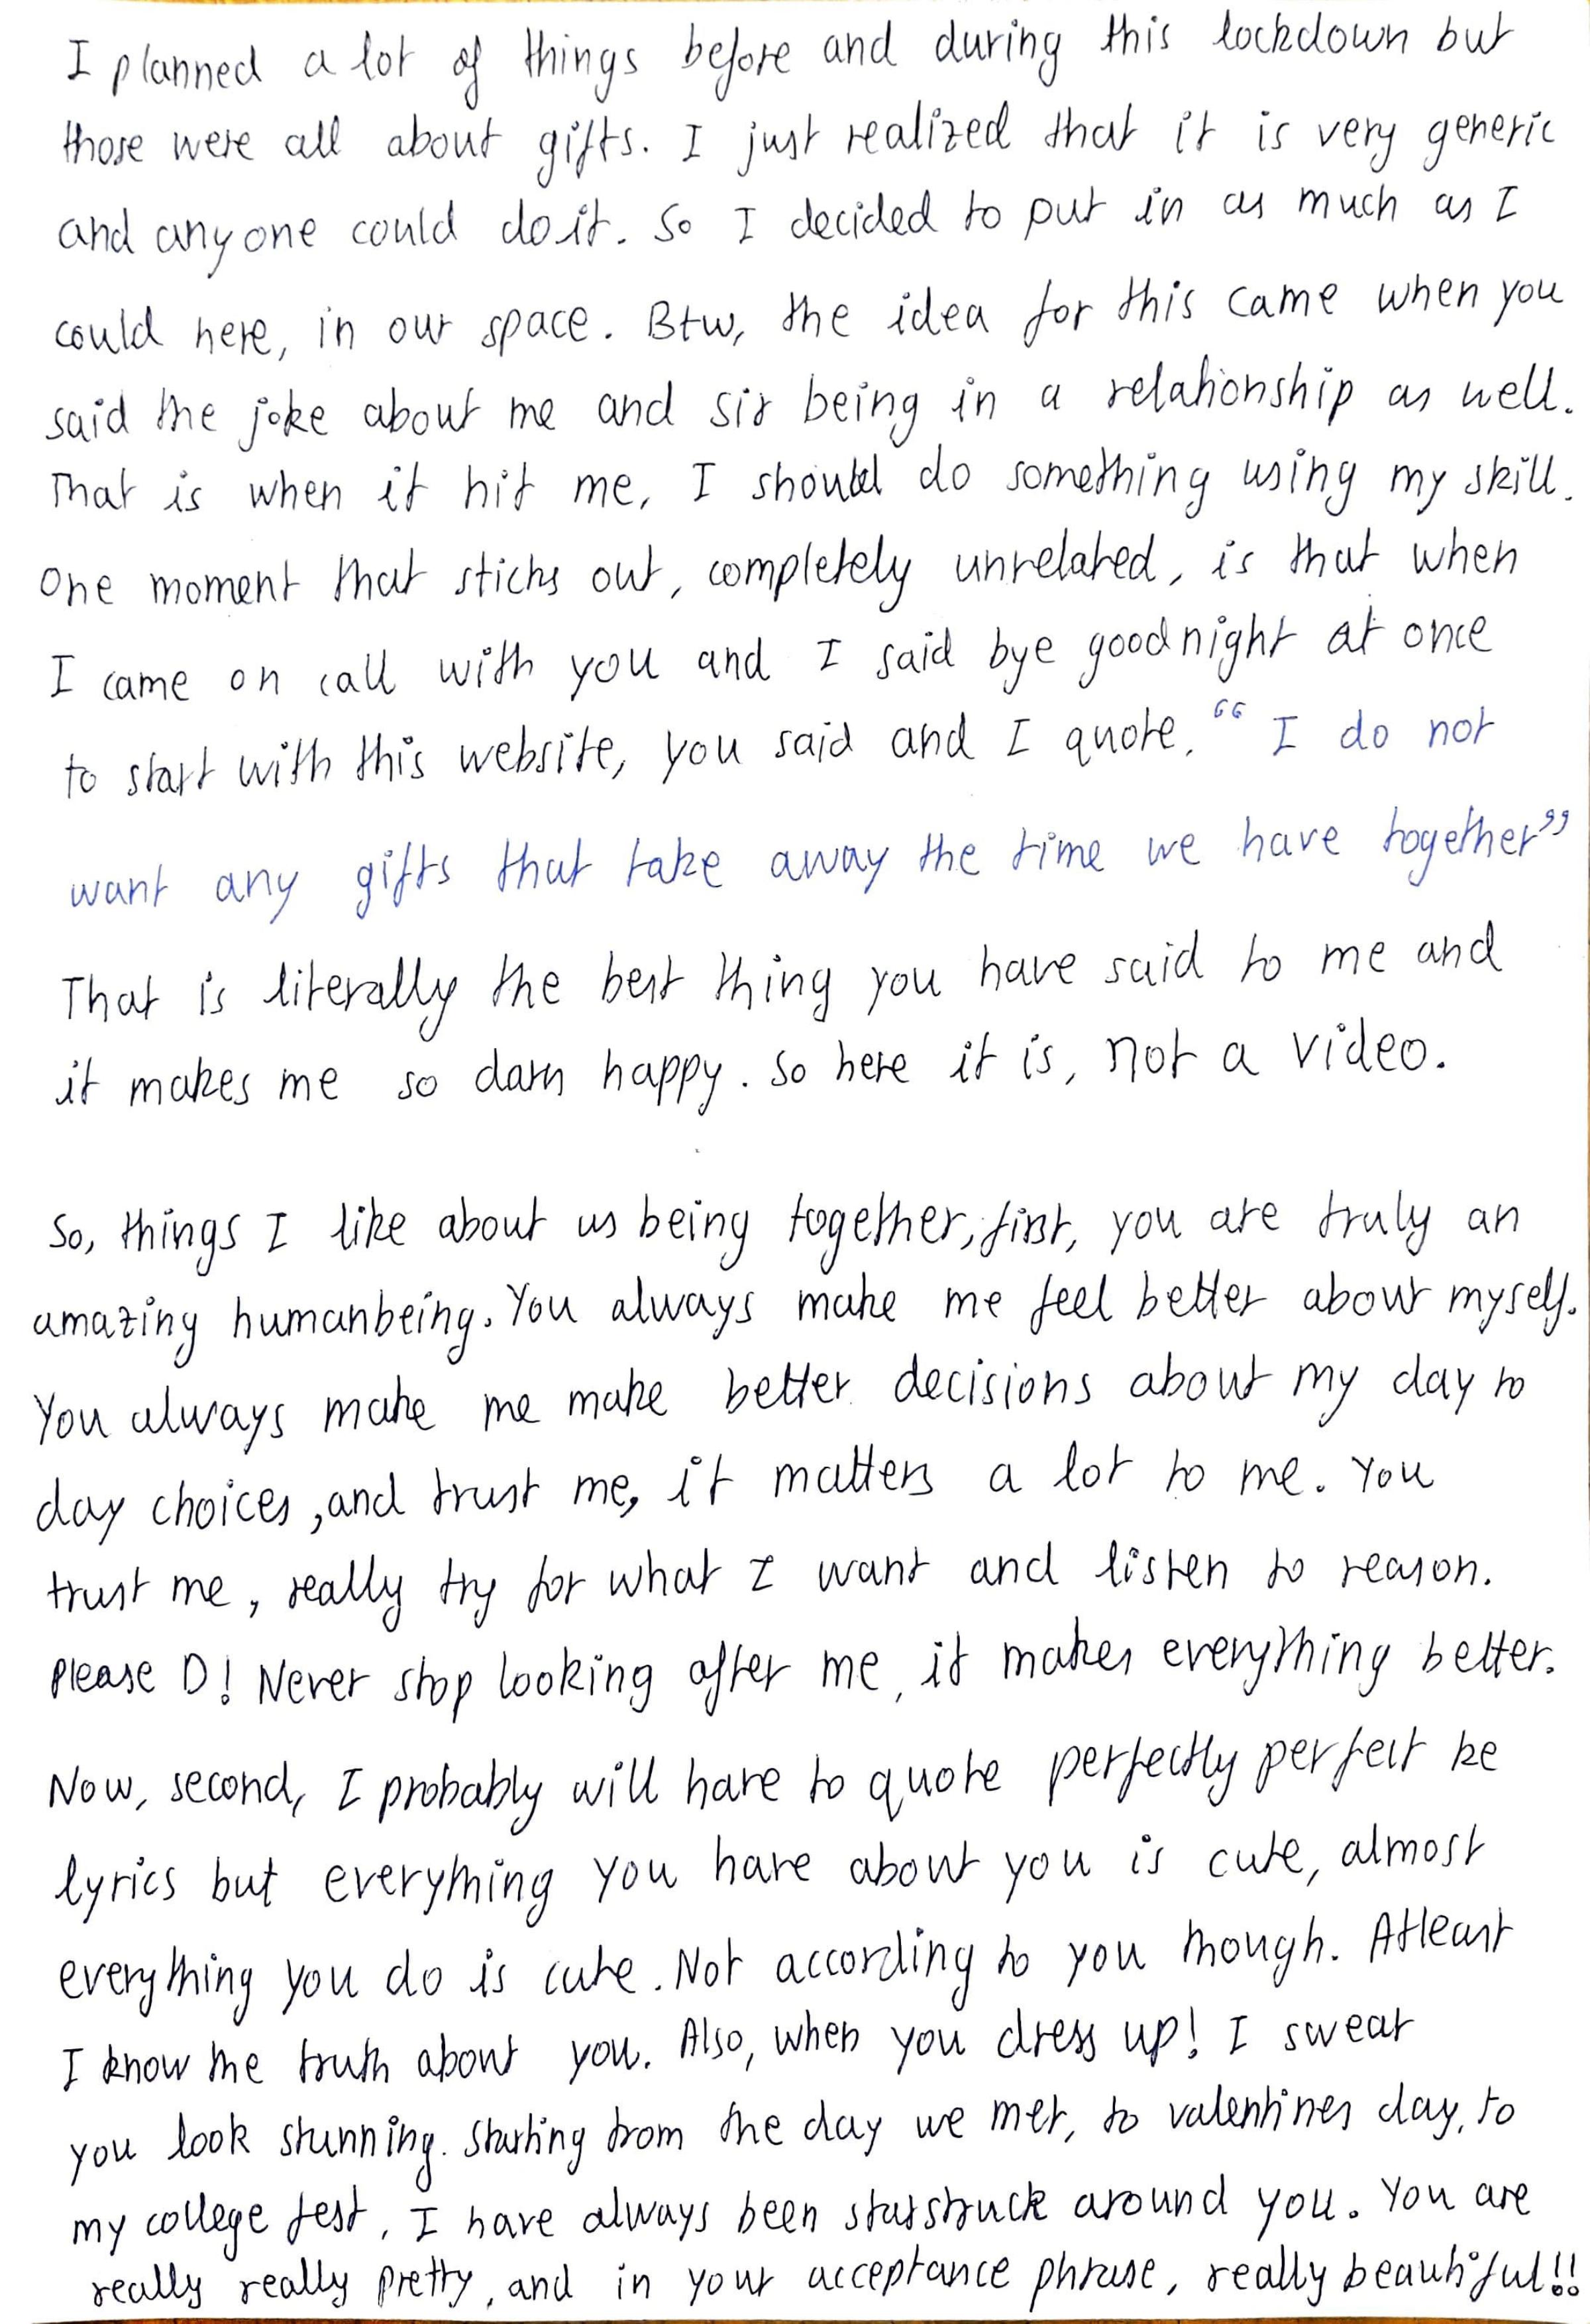 I planned a lot of things before and during this lockdown but
those were all about gifts. I just realized that it is very generic
and anyone could do it. So I decided to put in as much as I
could here, in our space. Btw, the idea for this came when you
said the joke about me and sir being in a relationship as well.
That is when it hit me, I should do something using my skill.
One moment that sticks out, completely unrelated, is that when
I came on call with you and I said bye goodnight at once
to start with this website, you said and I quote, “I do not
want any gifts that take away the time we have together”
That is literally the best thing you have said to me and
it makes me so darn happy. So here it is, not a video.
So, things I like about us being together, first, you are truly an
amazing humanbeing. You always make me feel better about myself.
You always make me make better decisions about my day to
day choices, and trust me, it matters a lot to me. You
trust me, really try for what I want and listen to reason.
Please D! Never stop looking after me, it makes everything better.
Now, second, I probably will have to quote perfectly perfect ke
lyrics but everything you have about you is cute, almost
everything you do is cute. Not according to you though. Atleast
I know the truth about you. Also, when you dress up! I swear
you look stunning. Starting from the day we met, to valentines day, to
my college fest, I have always been starstruck around you. You are
really really pretty, and in your acceptance phrase, really beautiful!!